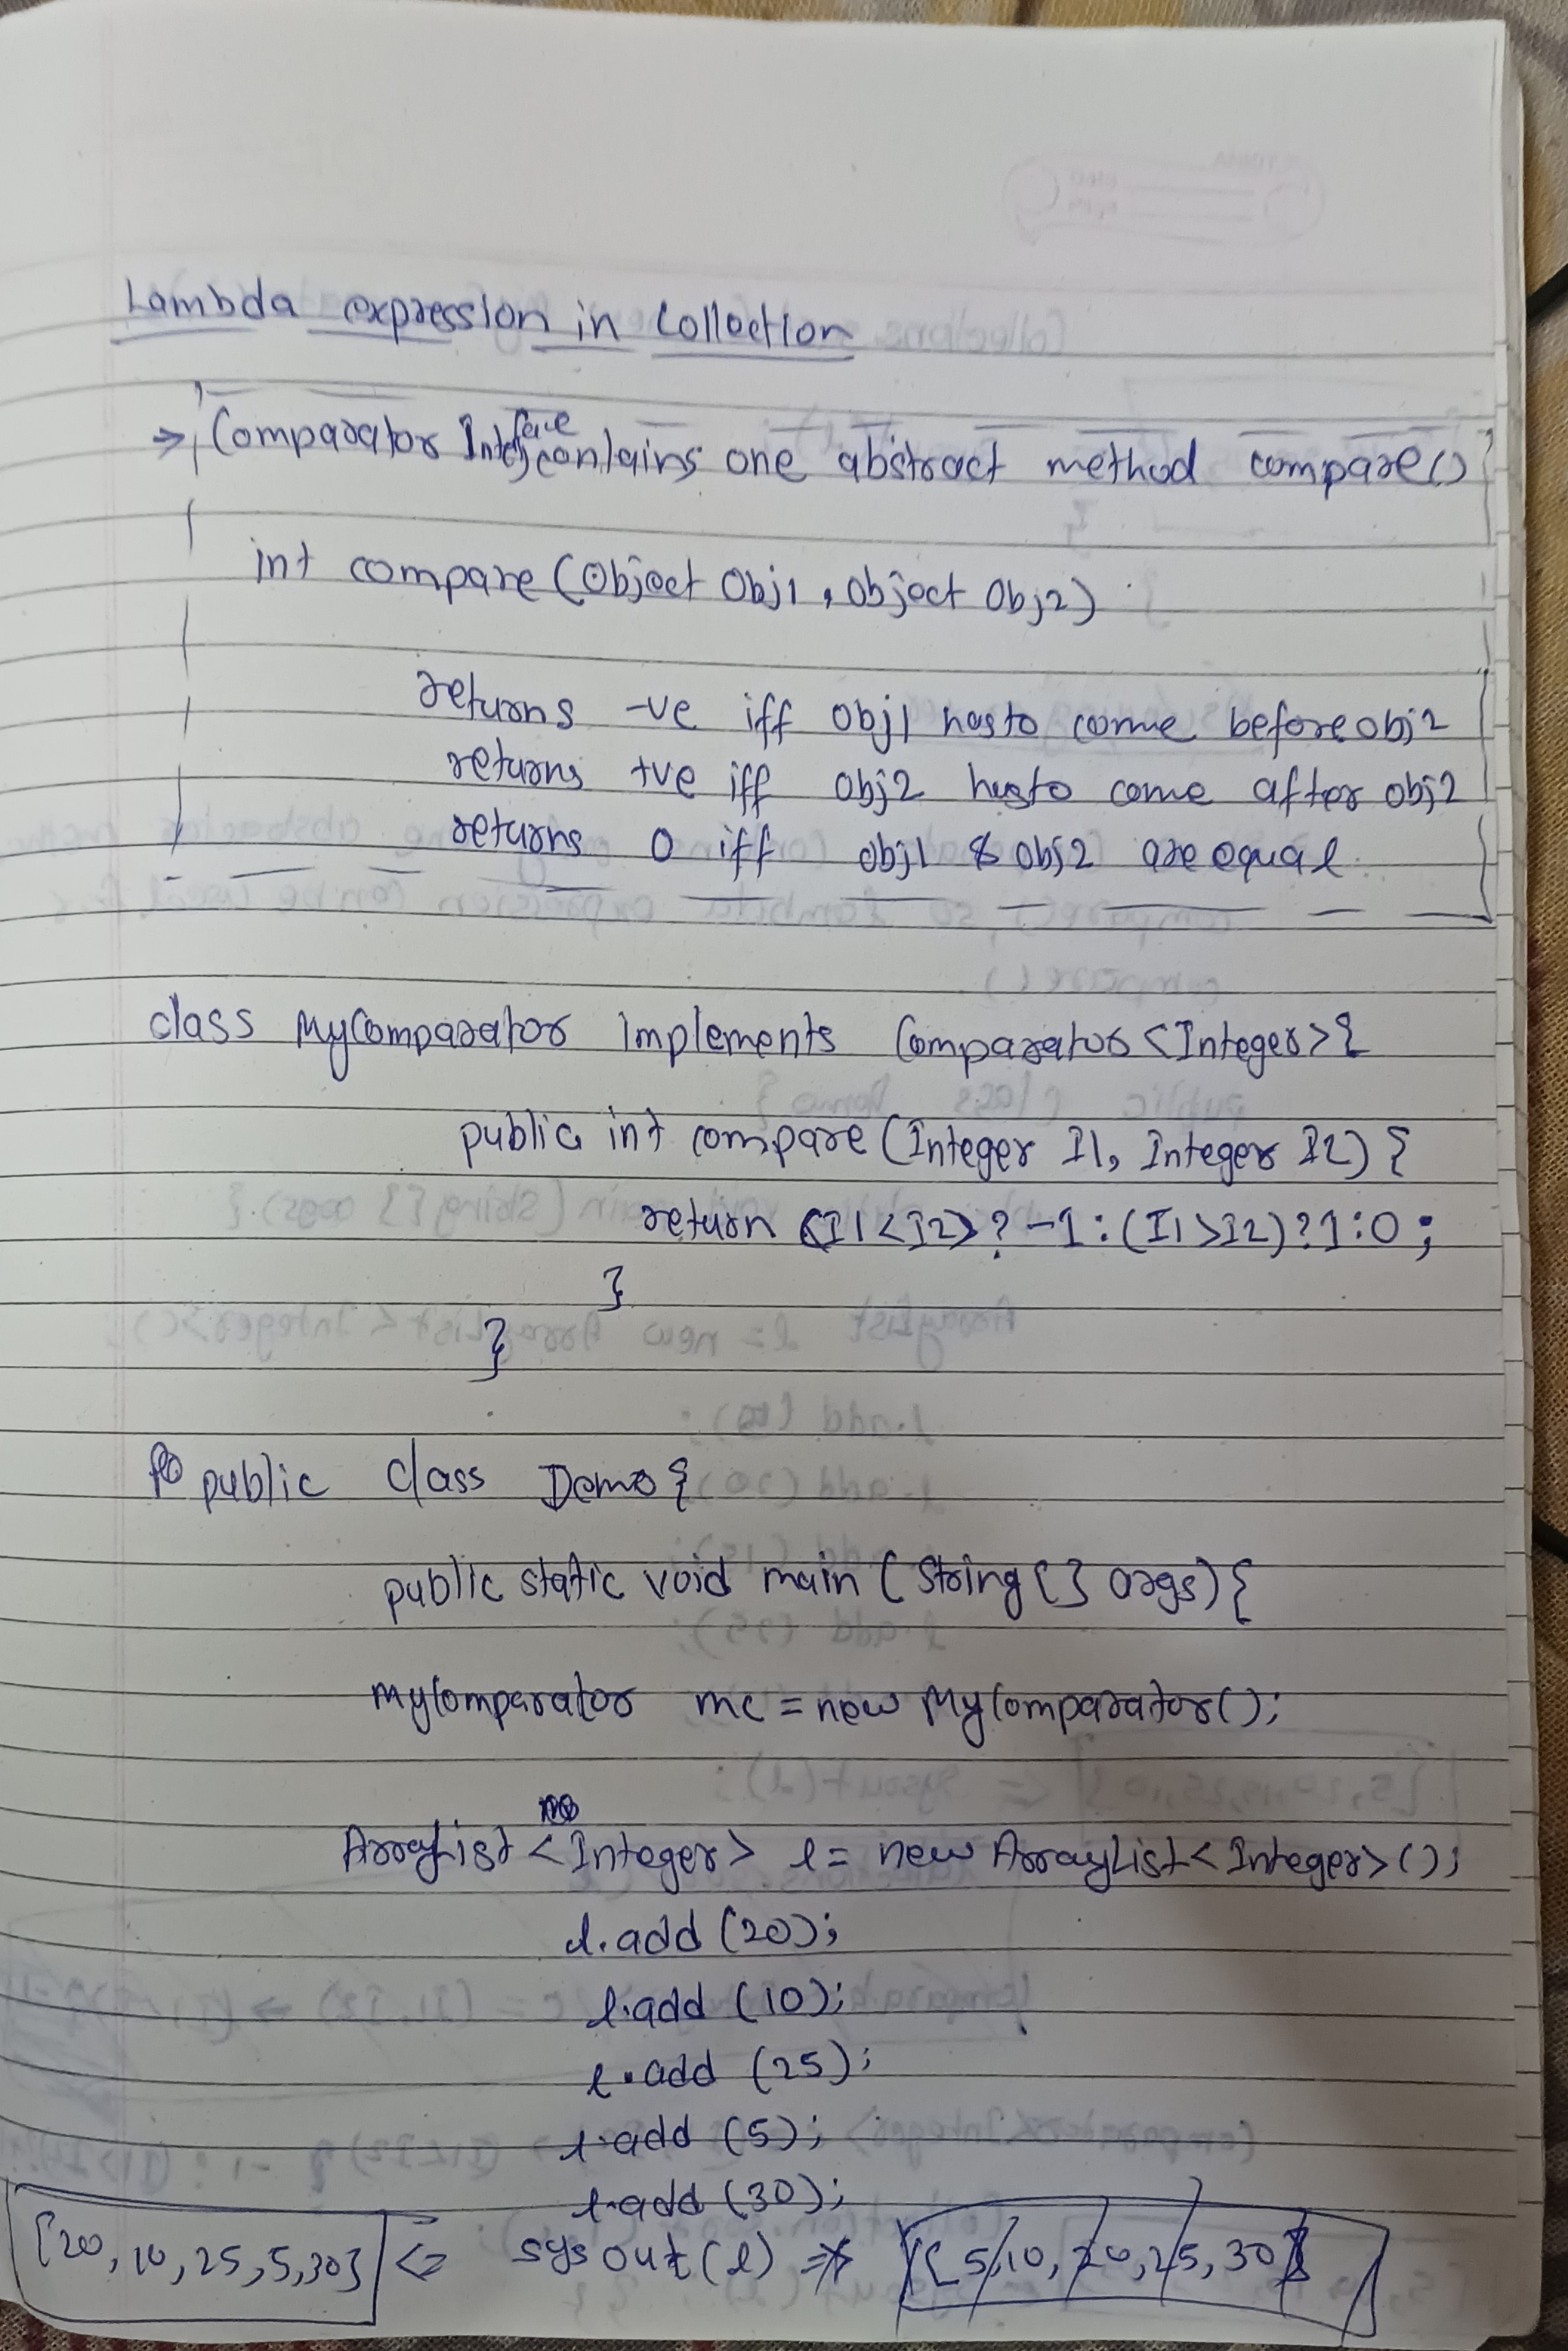 Lambda expression in Collection
→ Comparator Interface contains one abstract method compare()
int compare (Object Obj1, Object Obj2)
returns -ve iff obj1 has to come before obj2
returns +ve iff obj2 has to come after obj2
returns 0 iff obj1 & obj2 are equal
class MyComparator implements Comparator <Integer> {
public int compare (Integer I1, Integer I2) {
return (I1 < I2) ? -1 : (I1 > I2) ? 1 : 0 ;
}
}
public class Demo {
public static void main (String [] args) {
MyComparator mc = new MyComparator();
ArrayList <Integer> l = new ArrayList <Integer> ();
l.add (20);
l.add (10);
l.add (25);
l.add (5);
l.add (30);
[20, 10, 25, 5, 30] <= sysout (l) => [5, 10, 20, 25, 30]